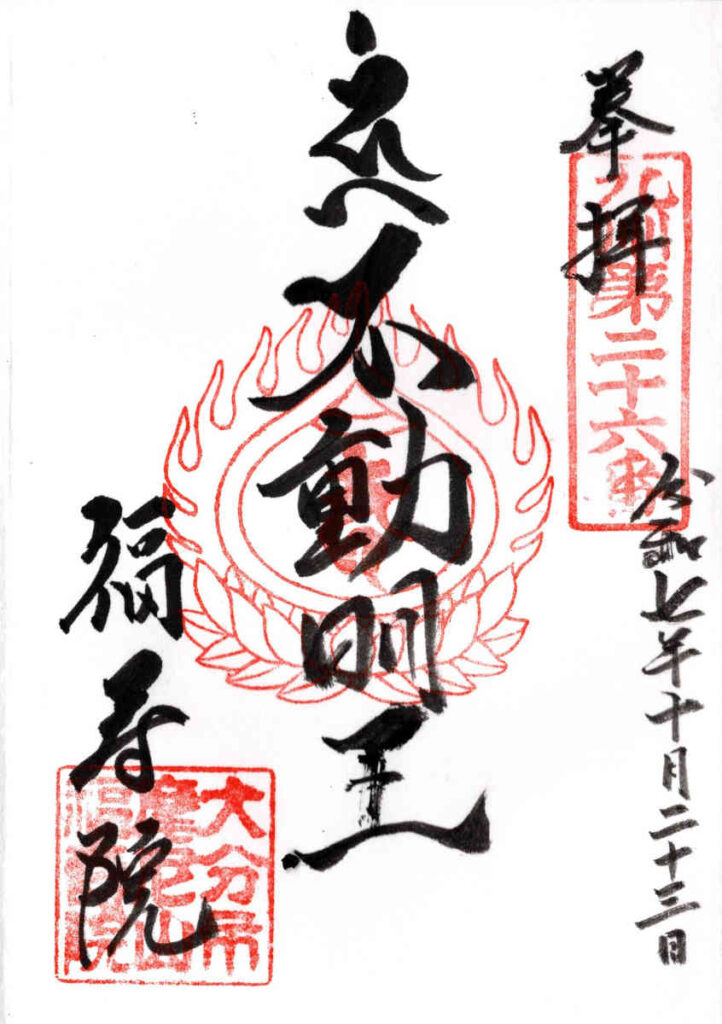 奉拝
九州第二十六番
令和七年十月二十三日
不動明王
福寿院
大分市
山
福寿院